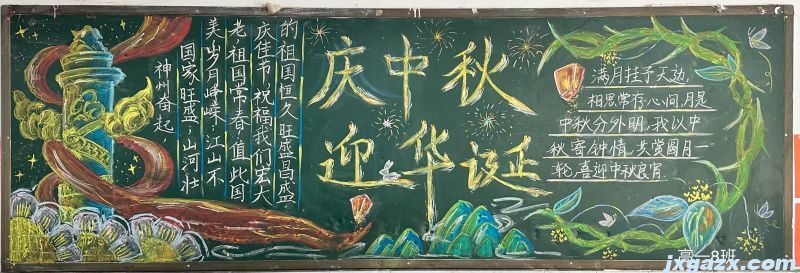 神州奋起
国家旺盛,山河壮
美,岁月峥嵘,江山不
老,祖国常春,值此国
庆佳节,祝福我们宏大
的祖国恒久旺盛昌盛。
庆中秋
迎华诞
满月挂予天边,
相思常存心间,月是
中秋分外明,我以中
秋寄钟情,共赏圆月一
轮,喜迎中秋良宵
高一8班
jxgazx.com